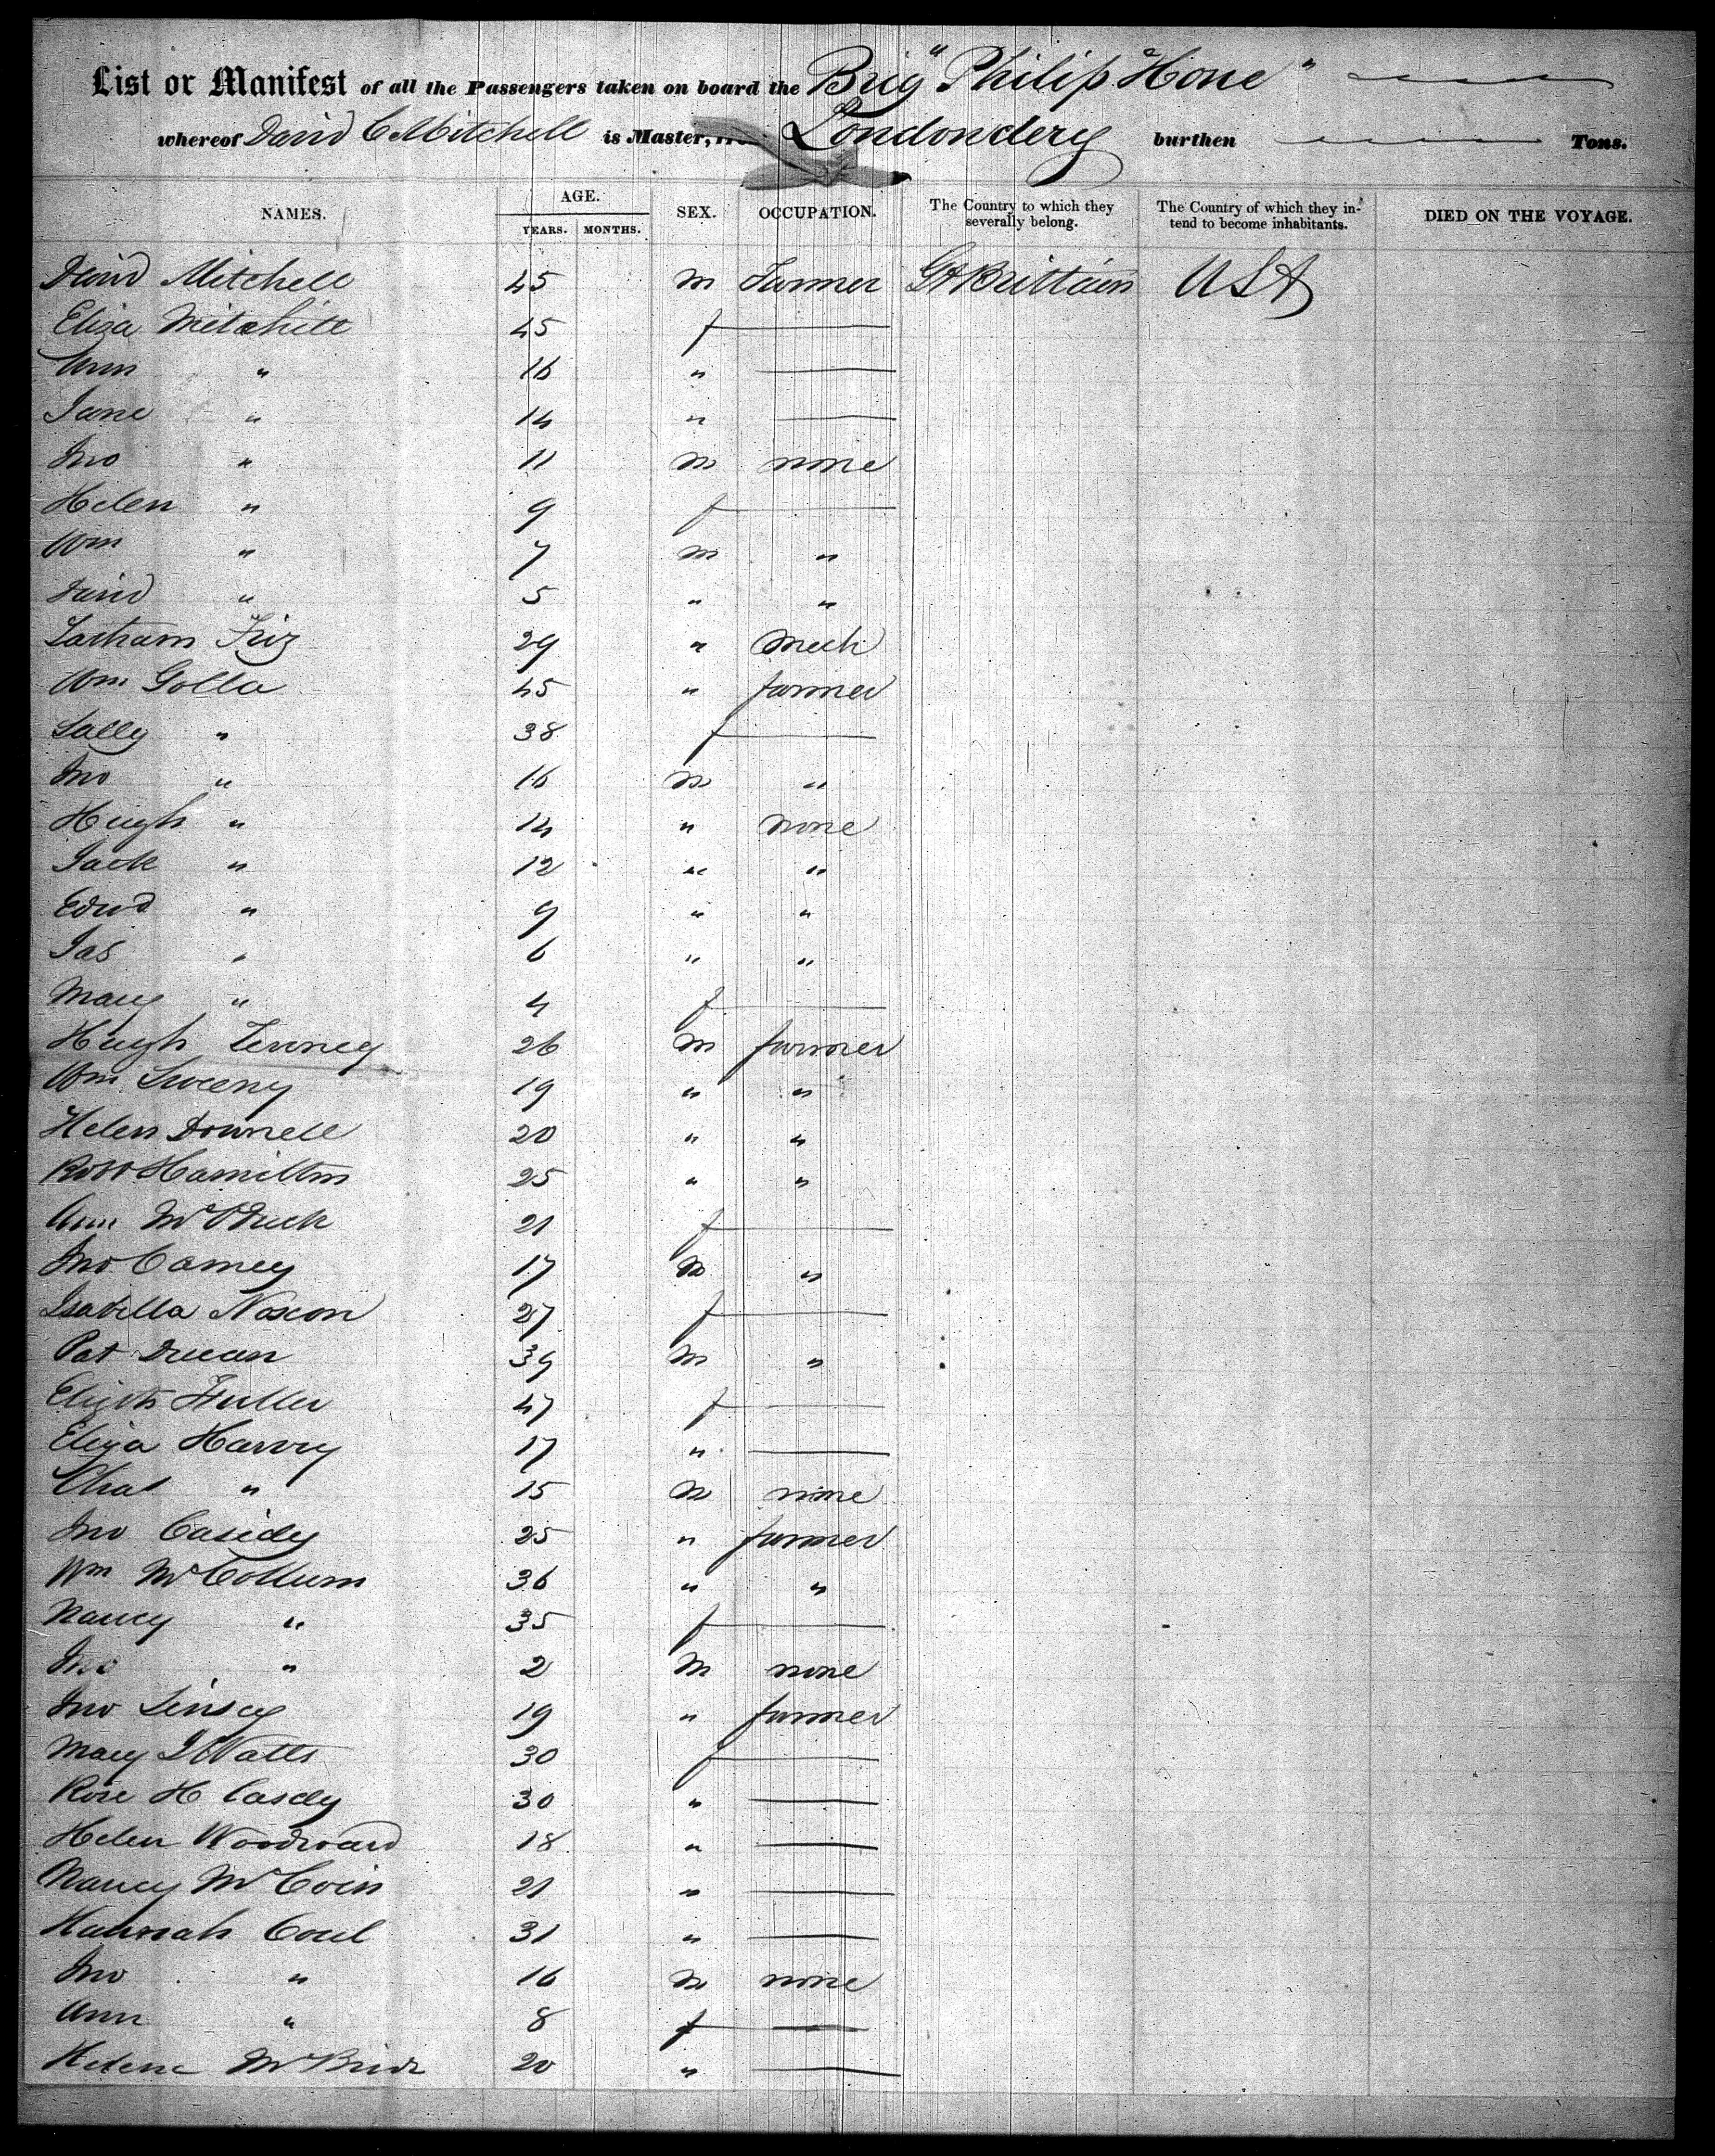 List or Manifest of all the Passengers taken on board the Brig "Philip Hone"
whereof David C Mitchell is Master, Londondery burthen Tons.
NAMES. AGE. YEARS. MONTHS. SEX. OCCUPATION. The Country to which they severally belong. The Country of which they intend to become inhabitants. DIED ON THE VOYAGE.
David Mitchell 45 m Farmer Gt Brittain USA
Eliza Mitchell 45 f
Ann " 16 "
Jane " 14 "
Jno " 11 m none
Helen " 9 f
Wm " 7 m "
David " 5 " "
29 " Mech
Wm Golla 45 " farmer
Sally " 38 f
Jno " 16 m "
Hugh " 14 " none
Jack " 12 " "
Edwd " 9 " "
Jas " 6 " "
Mary " 4 f
Hugh 26 m farmer
Wm Sweeny 19 " "
Helen Donnell 20 " "
Robt Hamilton 25 " "
Ann 21 f
Jno Carney 17 m "
Isabella Noxon 27 f
Pat 39 m "
Elizth Fuller 47 f
Eliza Harvy 17 "
Chas " 15 m none
Jno Casidy 25 " farmer
Wm McCollum 36 " "
Nancy " 35 f
Jno " 2 m none
Jno Linsey 19 " farmer
Mary J Watts 30 f
Rose H Casdy 30 "
Helen Woodward 18 "
Nancy McCoin 21 "
Hannah 31 "
Jno " 16 m none
Ann " 8 f
Helena McBride 20 "